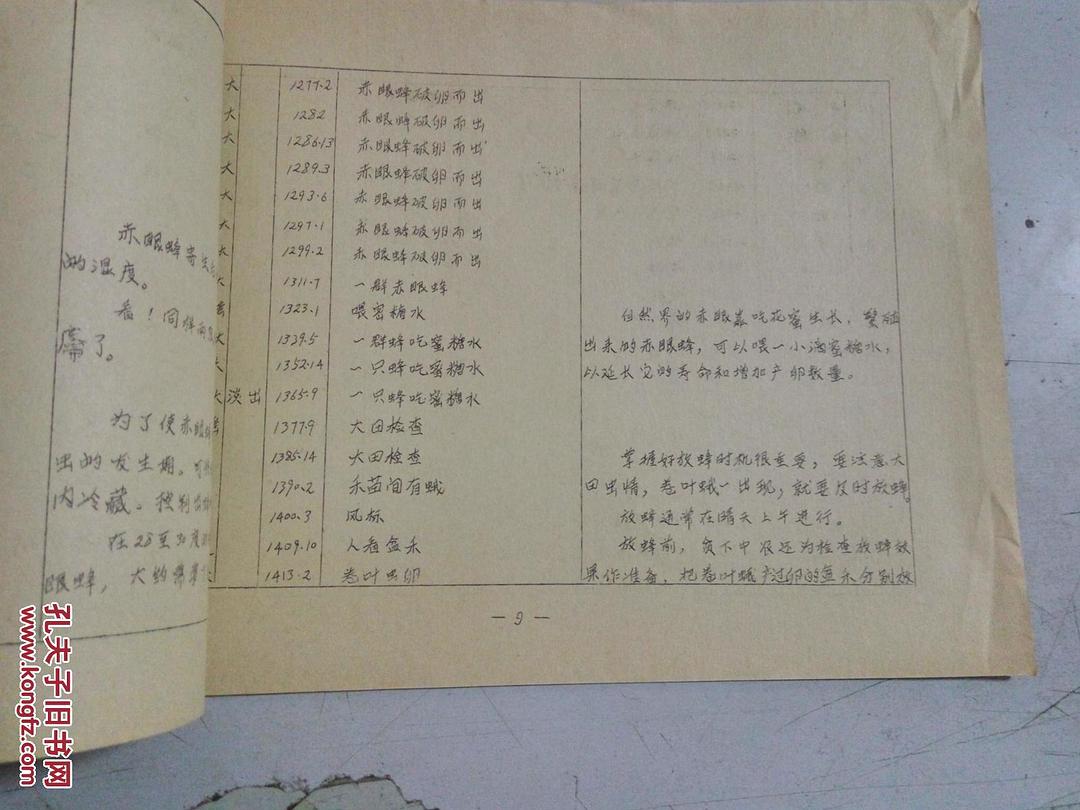 赤眼蜂寄生
的温度。
看！同样
了。
为了使赤眼
出的发生期。可
内冷藏。控制
在28至30度
眼蜂，大约
大 1277·2 赤眼蜂破卵而出
大 1282 赤眼蜂破卵而出
大 1286·13 赤眼蜂破卵而出
大 1289·3 赤眼蜂破卵而出
大 1293·6 赤眼蜂破卵而出
大 1297·1 赤眼蜂破卵而出
大 1299·2 赤眼蜂破卵而出
大 1311·7 一群赤眼蜂
1323·1 喂密糖水 自然界的赤眼蜂吃花蜜生长，繁殖
大 1339.5 一群蜂吃蜜糖水 出来的赤眼蜂，可以喂一小滴蜜糖水，
大 1352·14 一只蜂吃蜜糖水 以延长它的寿命和增加产卵数量。
大 淡出 1365·9 一只蜂吃蜜糖水
1377·9 大田检查
1385·14 大田检查 掌握好放蜂时机很重要，要注意大
1390·2 禾苗间有蛾 田虫情，卷叶蛾一出现，就要及时放蜂。
1400·3 风标 放蜂通常在晴天上午进行。
1409·10 人看盆禾 放蜂前，贫下中农还为检查放蜂效
1413·2 卷叶虫卵 果作准备，把卷叶蛾产过卵的盆禾分别放
— 9 —
孔夫子旧书网
www.kongfz.com